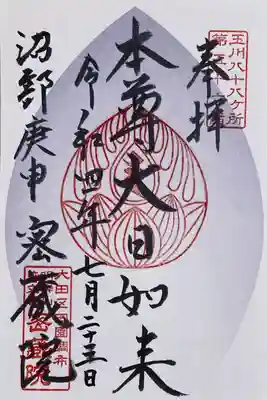 奉拝
玉川八十八ケ所
本尊大日如来
令和四年七月二十三日
沼部庚申 密蔵院
大田区田園調布
密蔵院